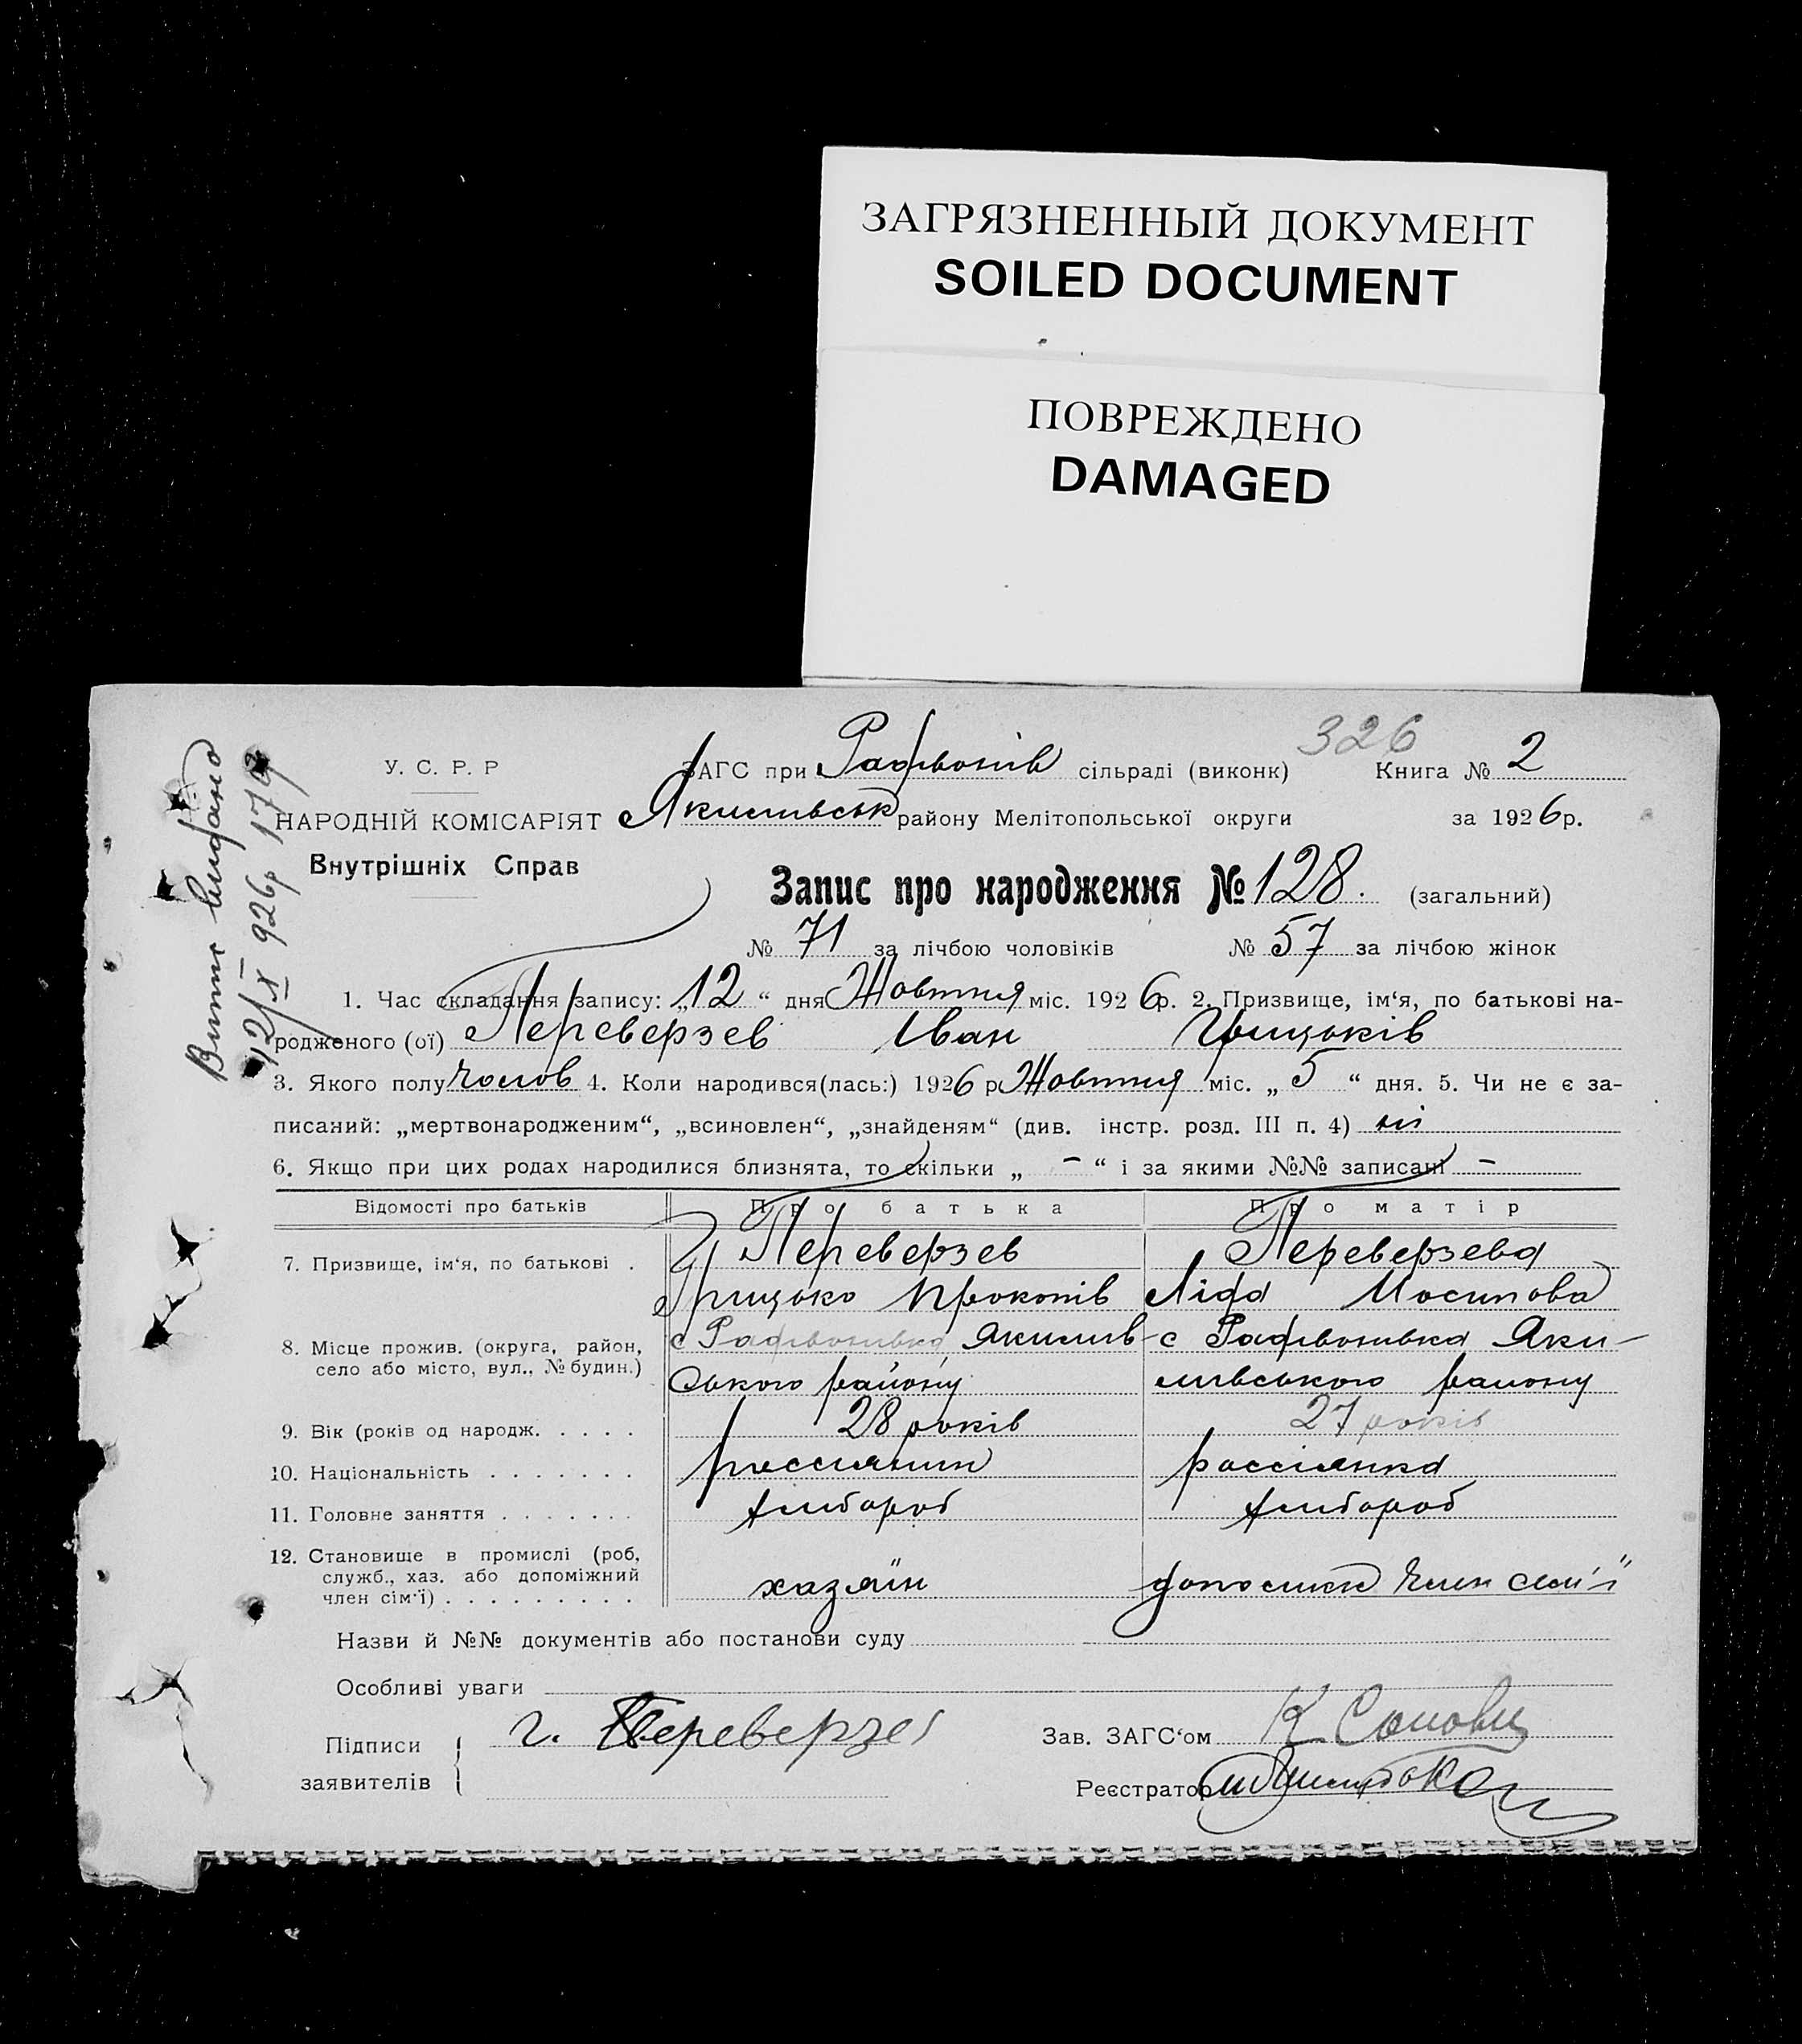 ЗАГРЯЗНЕННЫЙ ДОКУМЕНТ
SOILED DOCUMENT
ПОВРЕЖДЕНО
DAMAGED
326
У. С. Р. Р
НАРОДНІЙ КОМІСАРІЯТ
Внутрішніх Справ
ЗАГС при сільраді (виконк) Книга № 2
Якимівськ району Мелітопольської округи за 1926 р.
Запис про народження № 128. (загальний)
№ 71 за лічбою чоловіків № 57 за лічбою жінок
Витяг видано
12/X 926р
1. Час складання запису: „12“ дня Жовтня міс. 1926 р. 2. Призвище, ім‘я, по батькові на-
родженого (ої) Переверзев Іван Грицьків
3. Якого полу чолов 4. Коли народився(лась:) 1926 р Жовтня міс. „5“ дня. 5. Чи не є за-
писаний: „мертвонародженим“, „всиновлен“, „знайденям“ (див. інстр. розд. III п. 4) ні
6. Якщо при цих родах народилися близнята, то скільки „ – “ і за якими №№ записані –
Відомості про батьків Про батька Про матір
7. Призвище, ім‘я, по батькові . Переверзев Переверзева
Грицько Прокопів Ліда Йосипова
8. Місце прожив. (округа, район, с Якимів- с Яки-
село або місто, вул., № будин.) ського району мивського району
9. Вік (років од народж. . . . . 28 років 27 років
10. Національність . . . . . . . россиянин россіянка
11. Головне заняття . . . . . . . хлібороб хлібороб
12. Становище в промислі (роб,
служб., хаз. або допоміжний хазяїн член сем'ї
член сім‘ї) . . . . . . . . .
Назви й №№ документів або постанови суду
Особливі уваги
Підписи г. Переверзев Зав. ЗАГС‘ом К
заявителів Реєстратор